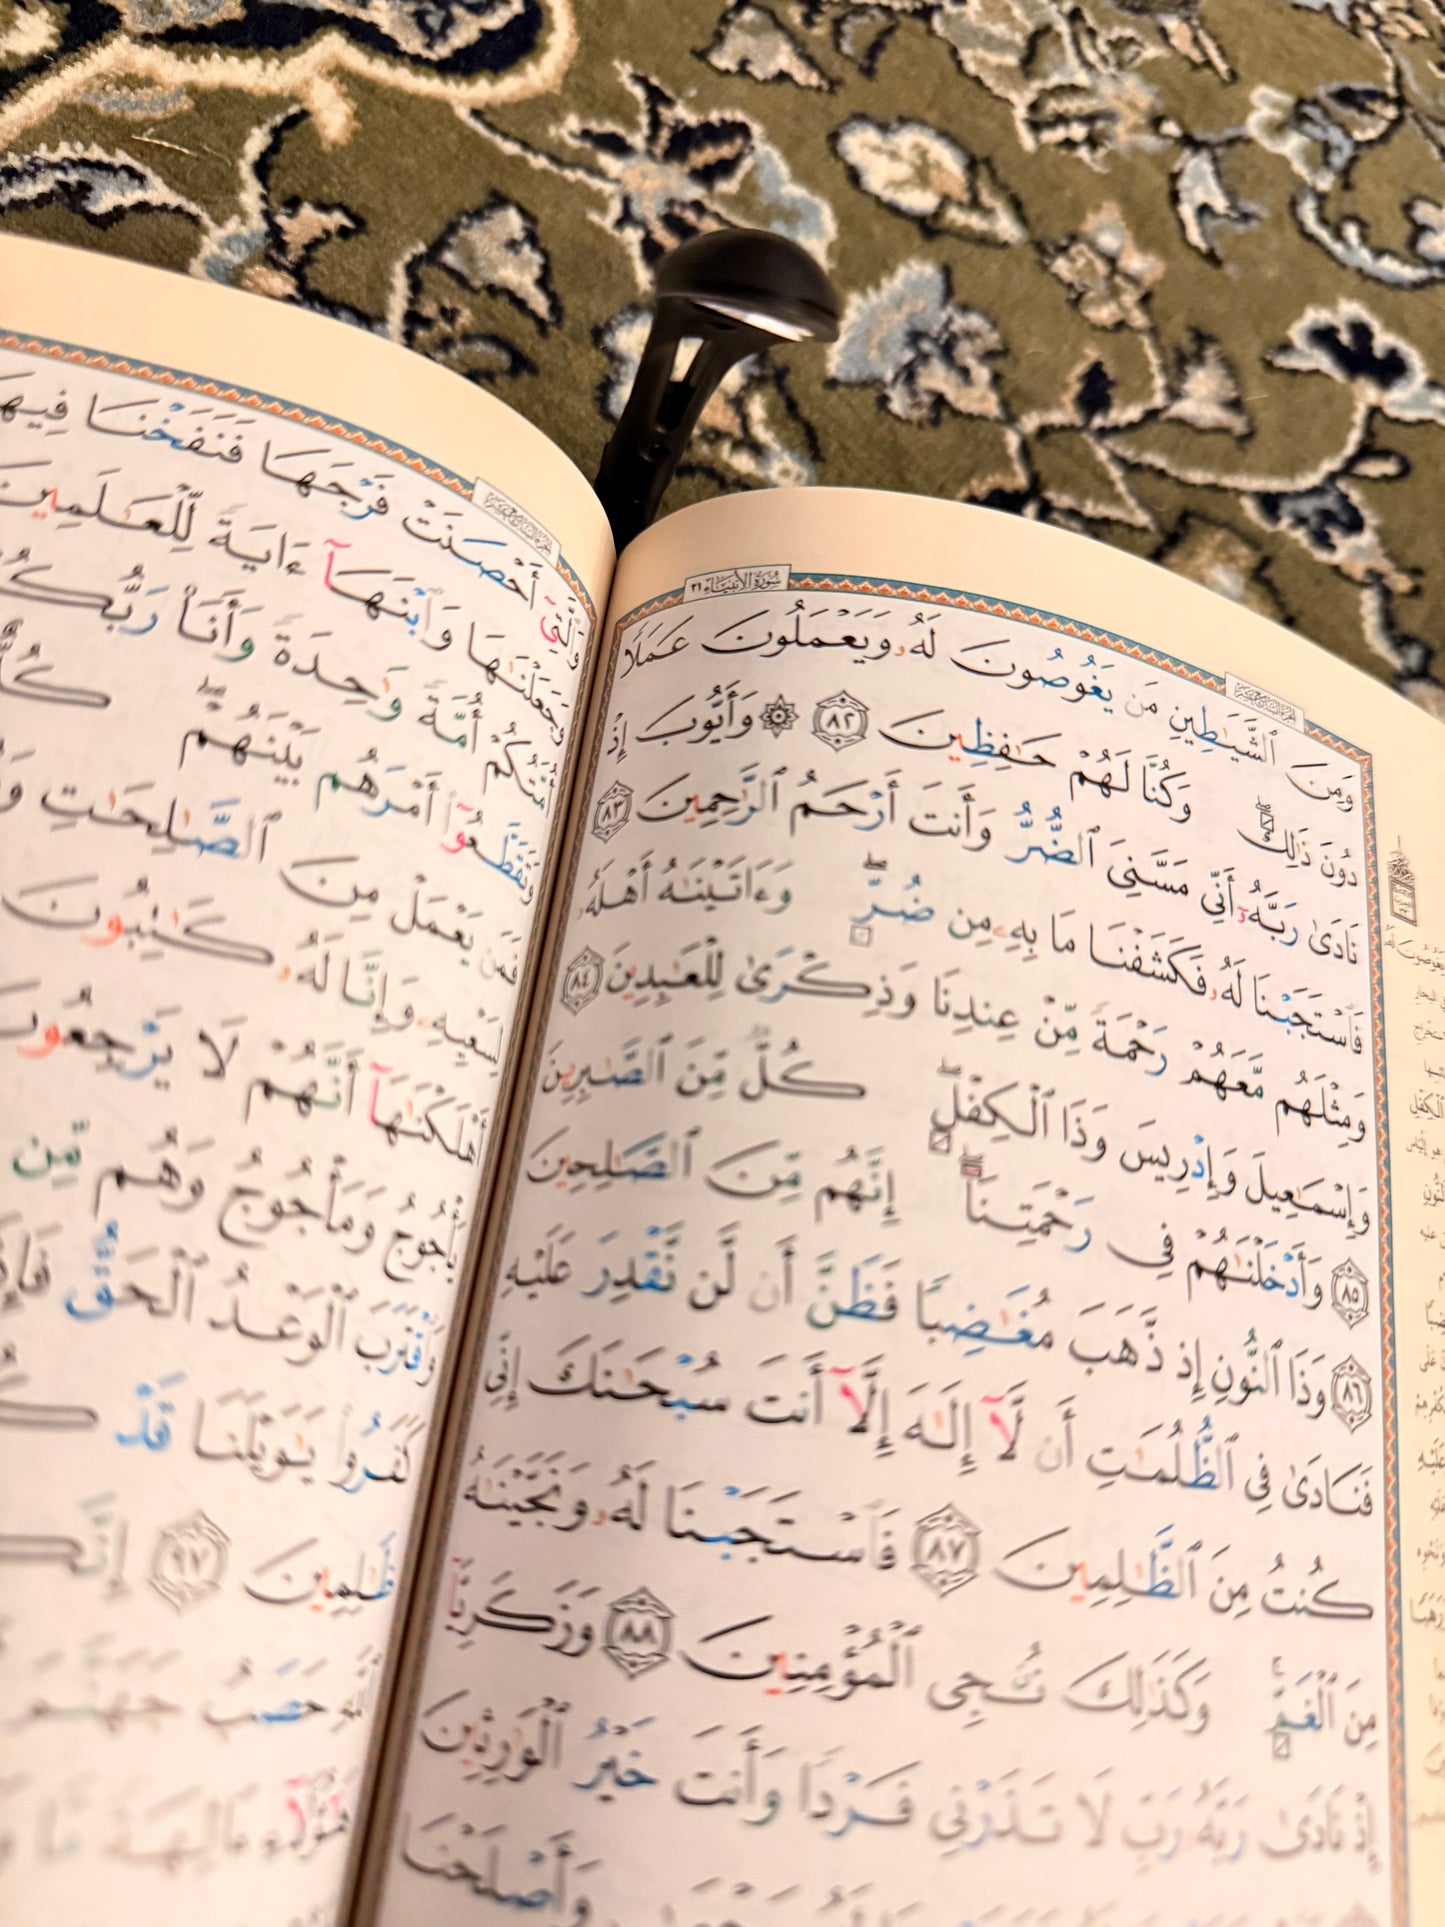 سُورَةُ الأَنبِيَاء ٢١
وَمِنَ ٱلشَّيَـٰطِينِ مَن يَغُوصُونَ لَهُۥ وَيَعْمَلُونَ عَمَلًا
دُونَ ذَٰلِكَۖ وَكُنَّا لَهُمْ حَـٰفِظِينَ ٨٢ ۞ وَأَيُّوبَ إِذْ
نَادَىٰ رَبَّهُۥٓ أَنِّى مَسَّنِىَ ٱلضُّرُّ وَأَنتَ أَرْحَمُ ٱلرَّٰحِمِينَ ٨٣
فَٱسْتَجَبْنَا لَهُۥ فَكَشَفْنَا مَا بِهِۦ مِن ضُرٍّۖ وَءَاتَيْنَـٰهُ أَهْلَهُۥ
وَمِثْلَهُم مَّعَهُمْ رَحْمَةً مِّنْ عِندِنَا وَذِكْرَىٰ لِلْعَـٰبِدِينَ ٨٤
وَإِسْمَـٰعِيلَ وَإِدْرِيسَ وَذَا ٱلْكِفْلِۖ كُلٌّ مِّنَ ٱلصَّـٰبِرِينَ
٨٥ وَأَدْخَلْنَـٰهُمْ فِى رَحْمَتِنَآۖ إِنَّهُم مِّنَ ٱلصَّـٰلِحِينَ
٨٦ وَذَا ٱلنُّونِ إِذ ذَّهَبَ مُغَـٰضِبًا فَظَنَّ أَن لَّن نَّقْدِرَ عَلَيْهِ
فَنَادَىٰ فِى ٱلظُّلُمَـٰتِ أَن لَّآ إِلَـٰهَ إِلَّآ أَنتَ سُبْحَـٰنَكَ إِنِّى
كُنتُ مِنَ ٱلظَّـٰلِمِينَ ٨٧ فَٱسْتَجَبْنَا لَهُۥ وَنَجَّيْنَـٰهُ
مِنَ ٱلْغَمِّۚ وَكَذَٰلِكَ نُـۨجِى ٱلْمُؤْمِنِينَ ٨٨ وَزَكَرِيَّآ
إِذْ نَادَىٰ رَبَّهُۥ رَبِّ لَا تَذَرْنِى فَرْدًا وَأَنتَ خَيْرُ ٱلْوَٰرِثِينَ
وَأَصْلَحْنَا
وَٱلَّتِىٓ أَحْصَنَتْ فَرْجَهَا فَنَفَخْنَا فِيهَا
وَجَعَلْنَـٰهَا وَٱبْنَهَآ ءَايَةً لِّلْعَـٰلَمِينَ
أُمَّتُكُمْ أُمَّةً وَٰحِدَةً وَأَنَا۠ رَبُّكُمْ
وَتَقَطَّعُوٓا۟ أَمْرَهُم بَيْنَهُمْۖ كُلٌّ
فَمَن يَعْمَلْ مِنَ ٱلصَّـٰلِحَـٰتِ
لِسَعْيِهِۦ وَإِنَّا لَهُۥ كَـٰتِبُونَ
أَهْلَكْنَـٰهَآ أَنَّهُمْ لَا يَرْجِعُونَ
يَأْجُوجُ وَمَأْجُوجُ وَهُم مِّن
وَٱقْتَرَبَ ٱلْوَعْدُ ٱلْحَقُّ فَإِذَا
كَفَرُوا۟ يَـٰوَيْلَنَا قَدْ
ظَـٰلِمِينَ ٩٧ إِنَّكُمْ
ٱللَّهِ حَصَبُ جَهَنَّمَ
هَـٰٓؤُلَآءِ ءَالِهَةً مَّا